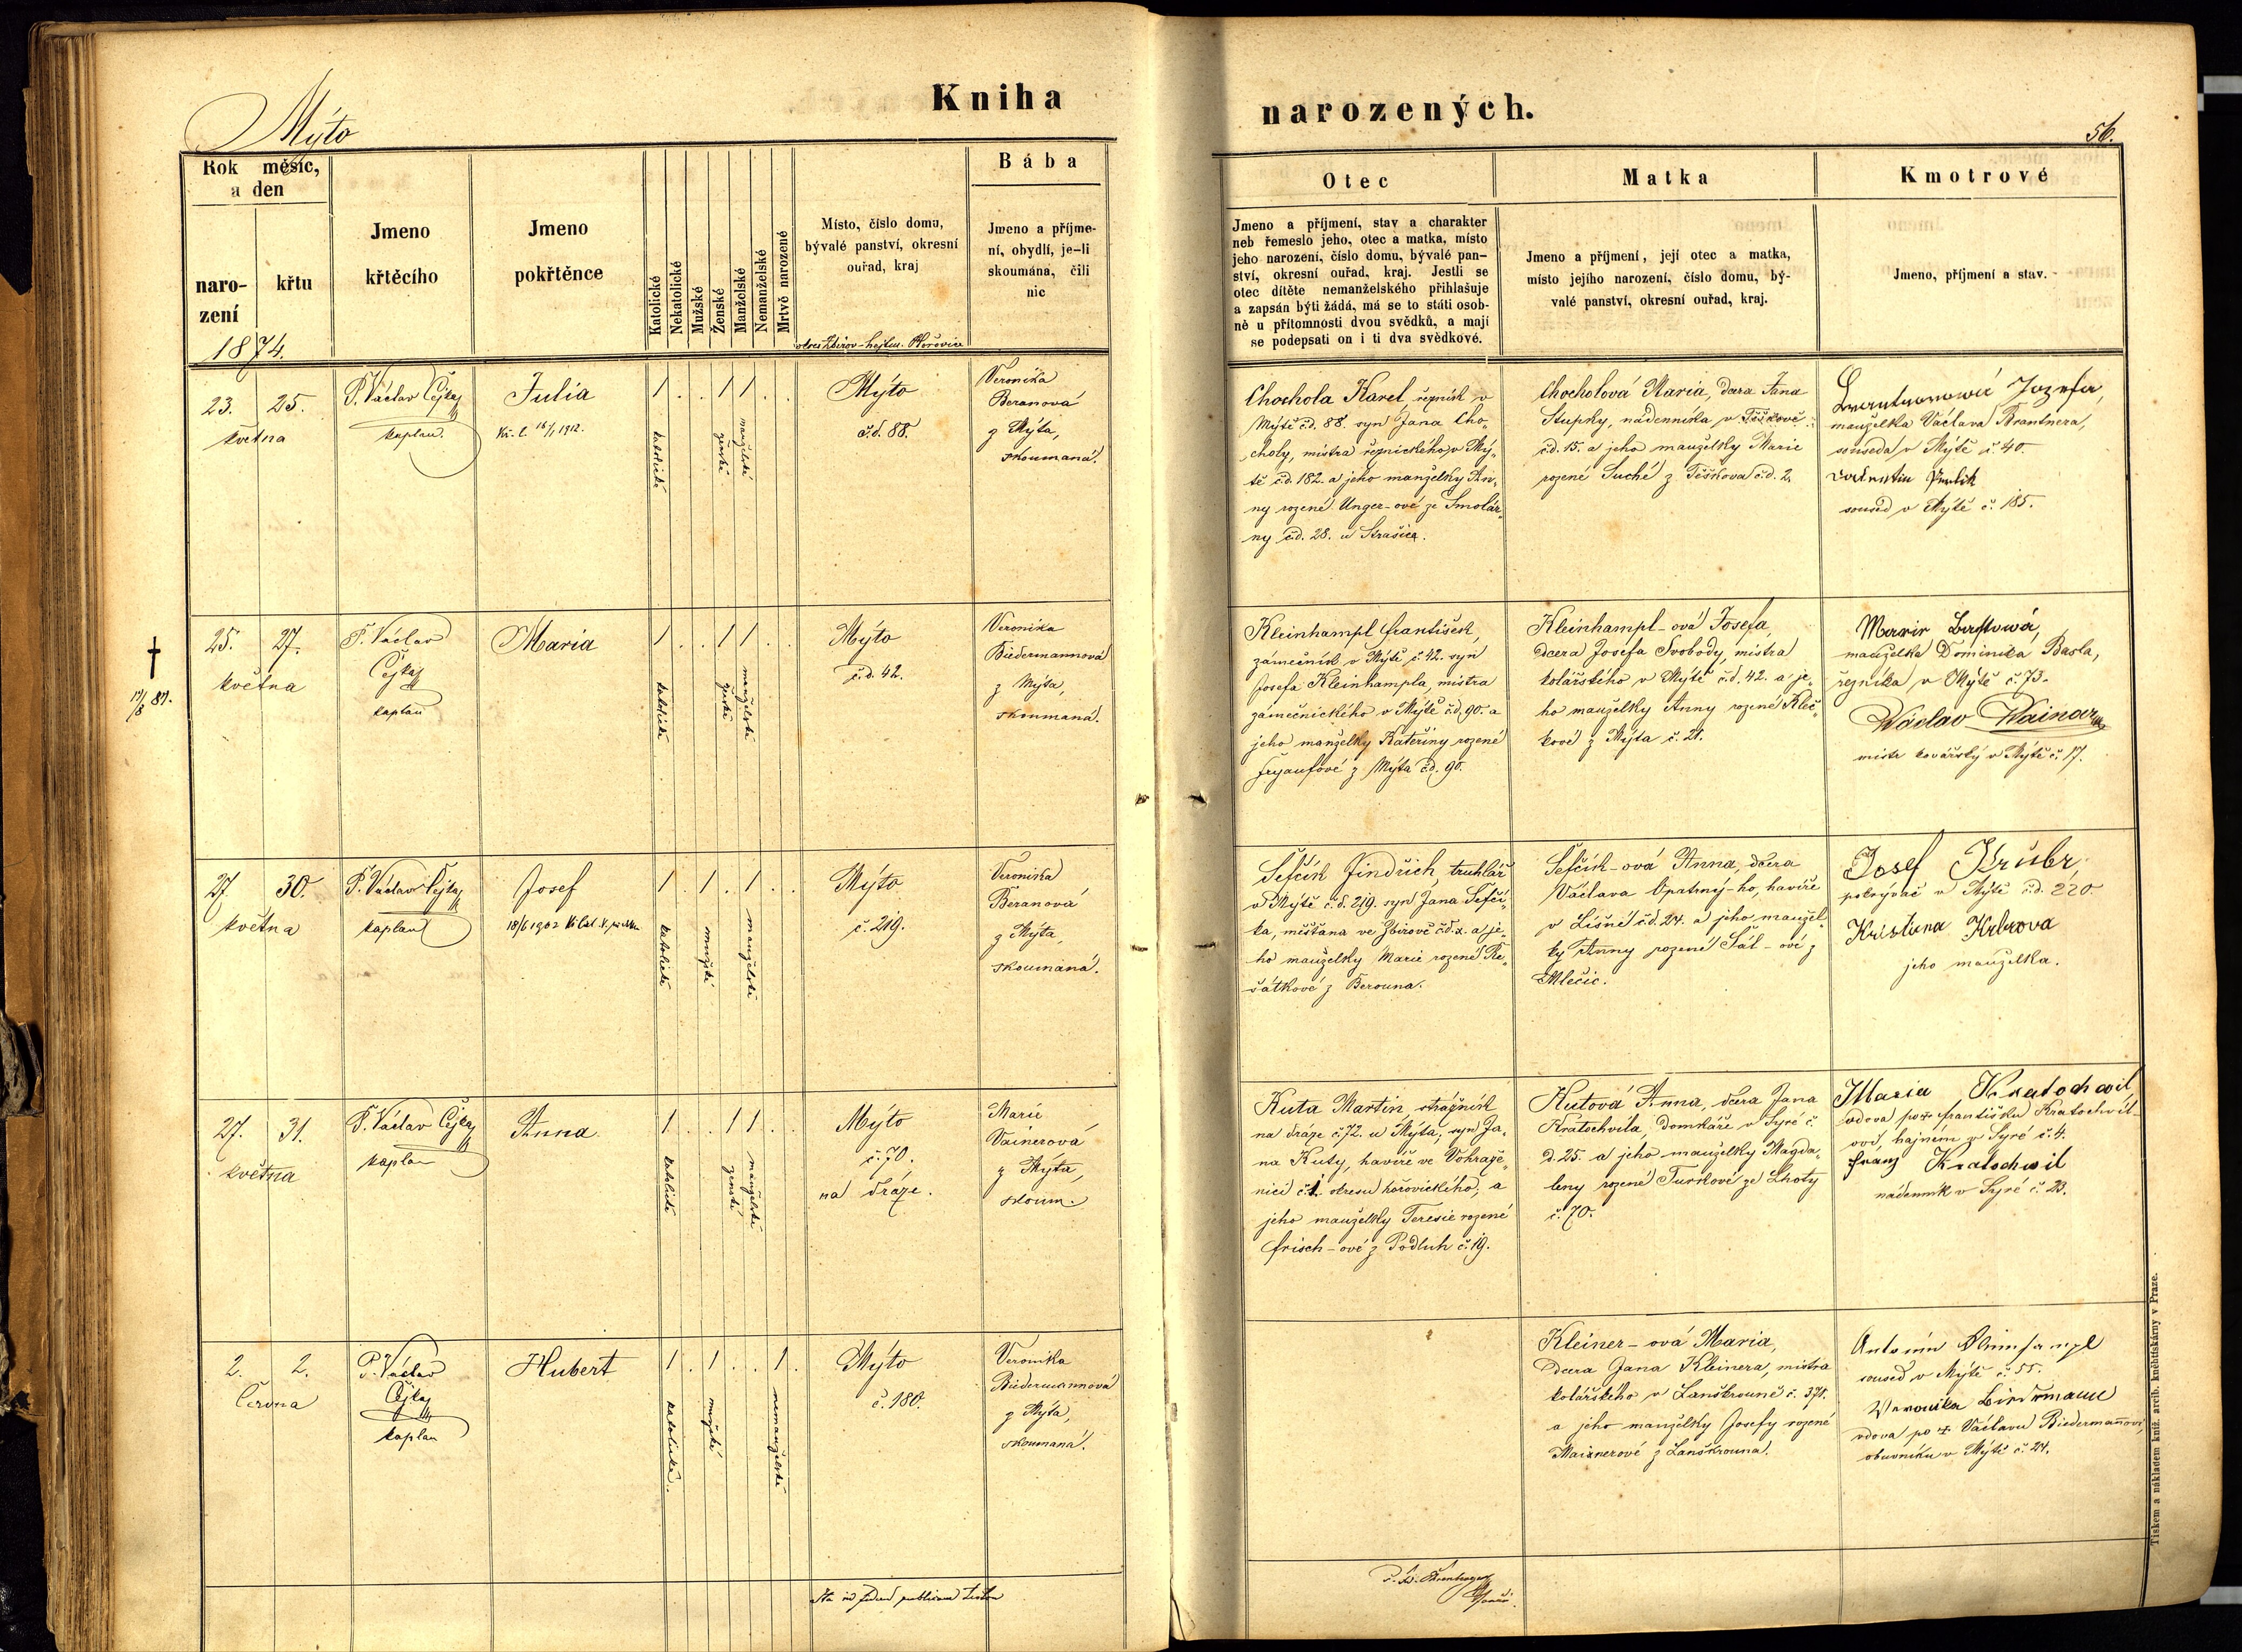 Kniha
narozených.
Mýto
56.
Rok měsíc,
a den
naro-
zení
křtu
1874.
Jmeno
křtěcího
Jmeno
pokřtěnce
Katolické
Nekatolické
Mužské
Ženské
Manželské
Nemanželské
Mrtvě narozené
Místo, číslo domu,
bývalé panství, okresní
ouřad, kraj
okres Zbirov - hejtm. Hořovice
Bába
Jmeno a příjme-
ní, obydlí, je-li
skoumána, čili
nic
Otec
Jmeno a příjmení, stav a charakter
neb řemeslo jeho, otec a matka, místo
jeho narození, číslo domu, bývalé pan-
ství, okresní ouřad, kraj. Jestli se
otec dítěte nemanželského přihlašuje
a zapsán býti žádá, má se to státi osob-
ně u přítomnosti dvou svědků, a mají
se podepsati on i ti dva svědkové.
Matka
Jmeno a příjmení, její otec a matka,
místo jejího narození, číslo domu, bý-
valé panství, okresní ouřad, kraj.
Kmotrové
Jmeno, příjmení a stav.
23. 25.
května
P. Václav Čejka
kaplan.
Julia
16/1 1912.
katolické
ženské
manželské
Mýto
č.d. 88.
Veronika
Beranová
z Mýta,
skoumaná.
Chochola Karel, řezník v
Mýtě č.d. 88. syn Jana Cho-
choly, mistra řeznického v Mý-
tě č.d. 182. a jeho manželky An-
ny rozené Unger-ové ze Smolár-
ny č.d. 28. u Strašic.
Chocholová Maria, dcera Jana
Stupky, nádenníka v Těškově
č.d. 15. a jeho manželky Marie
rozené Suché z Těškova č.d. 2.
Jozefa,
manželka Václava Brantnera,
souseda v Mýtě č. 40.
soused v Mýtě č. 185.
25. 27.
května
17/8 87.
P. Václav
Čejka
kaplan
Maria
katolické
ženské
manželské
Mýto
č.d. 42.
Veronika
Biedermannová
z Mýta,
skoumaná.
Kleinhampl František,
zámečník v Mýtě č. 42. syn
Josefa Kleinhampla, mistra
zámečnického v Mýtě č.d. 90. a
jeho manželky Kateřiny rozené
z Mýta č.d. 90.
Kleinhampl-ová Josefa,
dcera Josefa Svobody, mistra
kolářského v Mýtě č.d. 42. a je-
ho manželky Anny rozené Kleč-
kové z Mýta č. 21.
manželka Dominika Basla,
řezníka v Mýtě č. 73.
Václav Wainar
mistr kovářský v Mýtě č. 17.
27. 30.
května
P. Václav Čejka
kaplan
Josef
18/6 1902
katolické
mužské
manželské
Mýto
č. 219.
Veronika
Beranová
z Mýta,
skoumaná.
Šefčík Jindřich, truhlář
v Mýtě č.d. 219. syn Jana Šefčí-
ka, měšťana ve Zbirově č.d. x. a je-
ho manželky Marie rozené Ře-
šátkové z Berouna.
Šefčík-ová Anna, dcera
Václava Opatrný-ho, havíře
v Líšné č.d. 24. a jeho manžel-
ky Anny rozené Šál-ové z
Mlečic.
Josef Krubr,
pokrývač v Mýtě č.d. 220.
Kristina Krbrova
jeho manželka.
27. 31.
května
P. Václav Čejka
kaplan
Anna
katolické
ženské
manželské
Mýto
č. 70.
na dráze.
Marie
Vainerová
z Mýta,
skoum.
Kuta Martin, strážník
na dráze č. 72. u Mýta, syn Ja-
na Kuty, havíře ve Vohraže-
nici č. 1. okresu hořovického, a
jeho manželky Teresie rozené
Frisch-ové z Podluh č. 19.
Kutová Anna, dcera Jana
Kratochvila, domkáře v Syré č.
d. 25. a jeho manželky Magda-
leny rozené Turkové ze Lhoty
č. 70.
Maria Kratochwil
vdova po František Kratochvil-
ovi, hajném v Syré č. 4.
Franz Kratochwil
nádenník v Syré č. 23.
2. 2.
Června
P. Václav
Čejka
kaplan
Hubert
katolické.
mužské
nemanželské
Mýto
č. 180.
Veronika
Biedermannová
z Mýta,
skoumaná.
Kleiner-ová Maria,
dcera Jana Kleinera, mistra
kolářského v Lanškrouně č. 371.
a jeho manželky Josefy rozené
Maixnerové z Lanškrouna.
Antonin
soused v Mýtě č. 55.
Veronika Biedermann
vdova po † Václavu Biedermannovi,
obuvníku v Mýtě č. 24.
Tiskem a nákladem kníž. arcib. knihtiskárny v Praze.